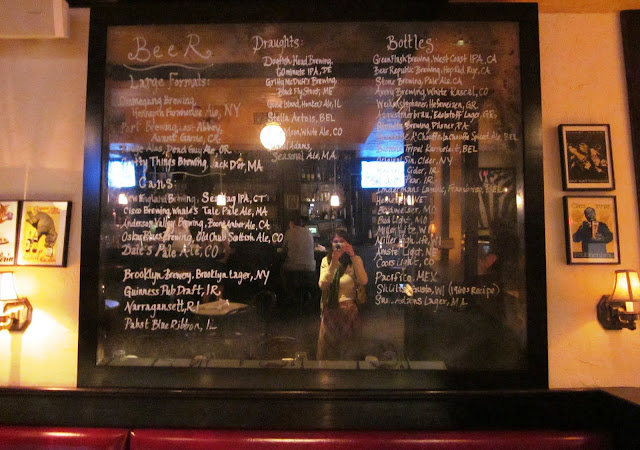 BeeR
Large Formats:
Ommegang Brewing,
Hennepin Farmhouse Ale, NY
Port Brewing, Lost Abbey,
Avant Garde, CA
Ale, OR
Pretty Things Brewing, Jack D'or, MA
Cans:
New England Brewing, Sea Hag IPA, CT
Cisco Brewing, Whale's Tale Pale Ale, MA
Anderson Valley Brewing, Boont Amber Ale, CA
Oskar Blues Brewing, Old Chub Scottish Ale, CO
Dale's Pale Ale, CO
Brooklyn Brewery, Brooklyn Lager, NY
Guinness Pub Draft, IR
Narragansett, RI
Pabst Blue Ribbon, IL
Draughts:
Dogfish Head Brewing,
60 minute IPA, DE
Brewing,
Black Fly Stout, ME
Goose Island, Honkers Ale, IL
Stella Artois, BEL
Moon, White Ale, CO
Adams,
Seasonal Ale, MA
Bottles
Green Flash Brewing, West Coast IPA, CA
Bear Republic Brewing, Hop Rod Rye, CA
Stone Brewing, Pale Ale, CA
Avery Brewing, White Rascal, CO
Weihenstephaner, Hefeweizen, GR
Edelstoff Lager, GR
Brewing Pilsner, PA
A'Chouffe, La Chouffe Spiced Ale, BEL
Tripel Karmeliet, BEL
Original Sin, Cider, NY
Cider, IR
Pear, IR
Lindemans Lambic, Framboise, BEL
Budweiser, MO
Bud Lite
Miller Lite, WI
Miller High Life, WI
Amstel Light, NE
Coors Light, CO
Pacifico, MEX
Schlitz Gusto, WI (1960s Recipe)
Sam Adams Lager, MA